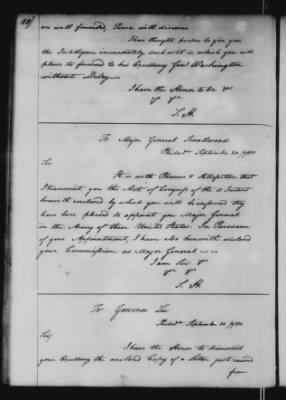 on well founded, Time will discover
I have thought proper to give you
the Intelligence immediately, such as it is which you will
please to forward to his Excellency Genl Washington
without Delay
I have the Honor to be &c
&c &c
S. H.
To Major General Smallwood
Philada September 20, 1780
Sir
It is with Pleasure & Satisfaction that
I transmit you the Act of Congress of the 15 Instant
herewith enclosed by which you will be informed they
have been pleased to appoint you Major General
in the Army of these United States. In Pursuance
of your Appointment, I have also herewith enclosed
your Commission as Major General
I am Sir &c
&c &c
S. H.
To Governor Lee
Philada September 20, 1780
Sir
I have the Honor to transmit
your Excellency the enclosed Copy of a Letter just received
from